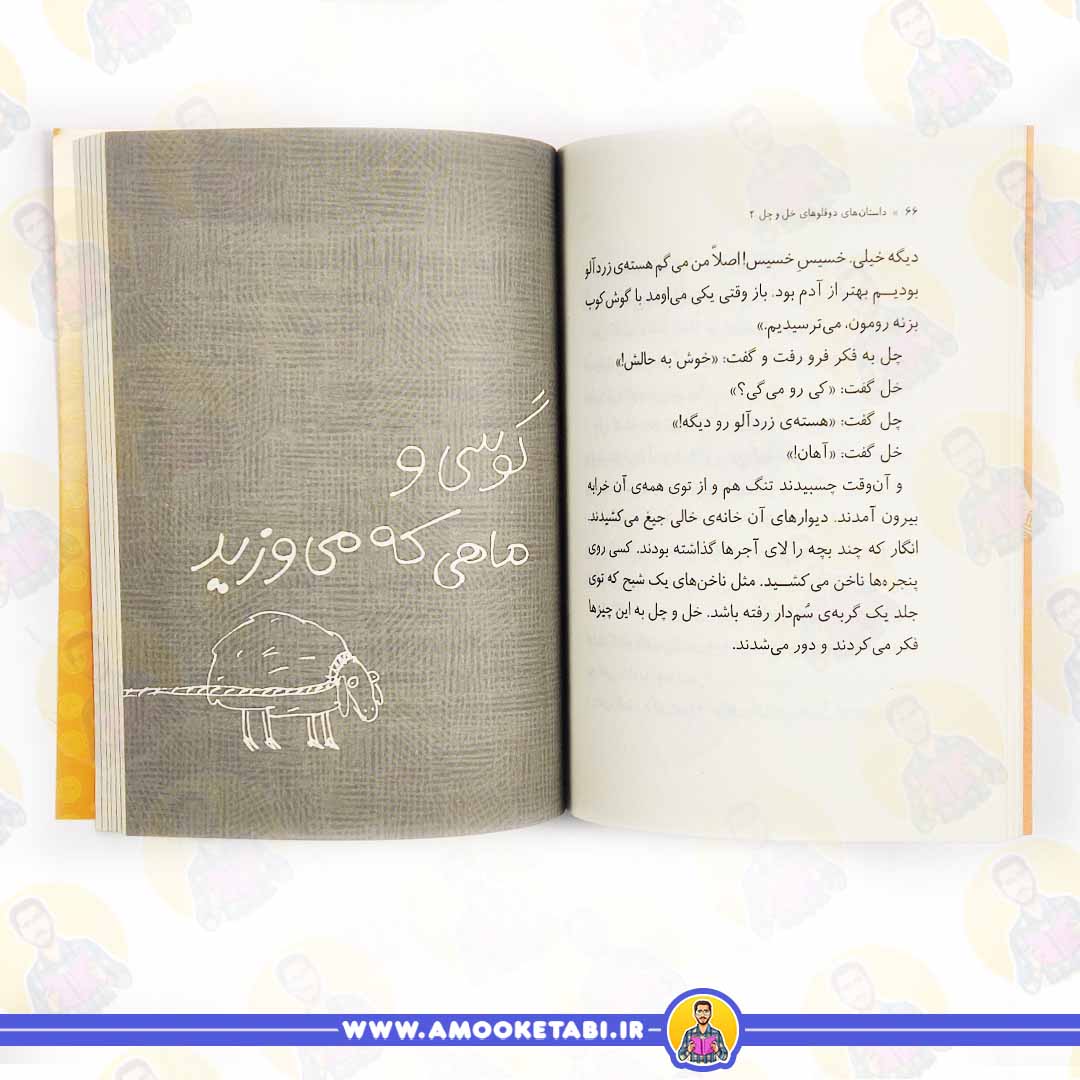 ۶۶ » داستان‌های دوقلوهای خل و چل ۲
دیگه خیلی. خسیسِ خسیس! اصلاً من می‌گم هسته‌ی زردآلو
بودیـم بهتر از آدم بود. باز وقتی یکی می‌اومد با گوش‌کوب
بزنه رومون، می‌ترسیدیم.»
چل به فکر فرو رفت و گفت: «خوش به حالش!»
خل گفت: «کی رو می‌گی؟»
چل گفت: «هسته‌ی زردآلو رو دیگه!»
خل گفت: «آهان!»
و آن‌وقت چسبیدند تنگ هم و از توی همه‌ی آن خرابه
بیرون آمدند. دیوارهای آن خانه‌ی خالی جیغ می‌کشیدند.
انگار که چند بچه را لای آجرها گذاشته بودند. کسی روی
پنجره‌ها ناخن می‌کشـید. مثل ناخن‌های یک شبح که توی
جلد یک گربه‌ی سُم‌دار رفته باشد. خل و چل به این چیزها
فکر می‌کردند و دور می‌شدند.
گوسی و
ماهی که می‌وزید
WWW.AMOOKETABI.IR